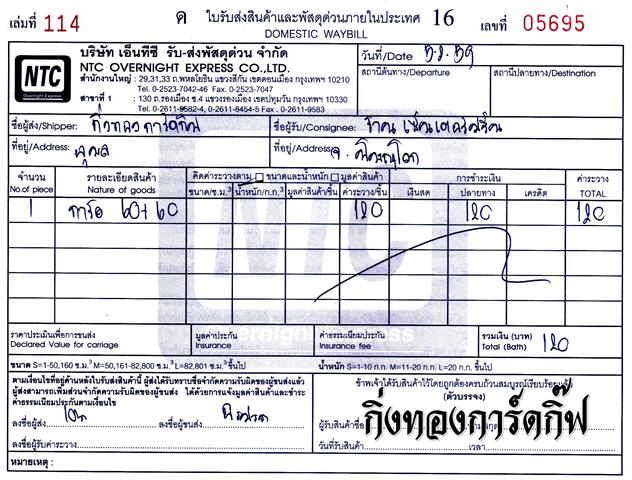 เล่มที่ 114 ค ใบรับส่งสินค้าและพัสดุด่วนภายในประเทศ 16 เลขที่ 05695
DOMESTIC WAYBILL
NTC
Overnight Express
บริษัท เอ็นทีซี รับ-ส่งพัสดุด่วน จำกัด
NTC OVERNIGHT EXPRESS CO.,LTD.
สำนักงานใหญ่ : 29,31,33 ถ.พหลโยธิน แขวงสีกัน เขตดอนเมือง กรุงเทพฯ 10210
Tel. 0-2523-7042-46 Fax. 0-2523-7047
สาขาที่ 1 : 130 ถ.รองเมือง ซ.4 แขวงรองเมือง เขตปทุมวัน กรุงเทพฯ 10330
Tel. 0-2611-9582-4, 0-2611-8454-5 Fax : 0-2611-9583
วันที่/Date
สถานีต้นทาง/Departure สถานีปลายทาง/Destination
ชื่อผู้ส่ง/Shipper: กิ่งทองการ์ดกิ๊ฟ ชื่อผู้รับ/Consignee: ร้าน
ที่อยู่/Address: ที่อยู่/Address: จ. พิษณุโลก
จำนวน รายละเอียดสินค้า คิดค่าระวางตาม ขนาดและน้ำหนัก มูลค่าสินค้า การชำระเงิน ค่าระวาง
No.of piece Nature of goods ขนาด/ซ.ม.³ น้ำหนัก/ก.ก.³ มูลค่าสินค้า/ชิ้น ค่าระวาง/ชิ้น เงินสด ปลายทาง เครดิต TOTAL
1 การ์ด 60+60 120 120 120
ราคาประเมินเพื่อการขนส่ง มูลค่าประกัน ค่าธรรมเนียมประกัน รวมเงิน (บาท) 120
Declared Value for carriage Insurance Insurance fee Total (Bath)
ขนาด S=1-50,160 ซ.ม.³ M=50,161-82,800 ซ.ม.³ L=82,801 ซ.ม.³ ขึ้นไป น้ำหนัก S=1-10 ก.ก. M=11-20 ก.ก. L=20 ก.ก. ขึ้นไป
ตามเงื่อนไขที่อยู่ด้านหลังใบรับส่งสินค้านี้ ผู้ส่งได้รับทราบข้อจำกัดความรับผิดของผู้ขนส่งแล้ว
ผู้ส่งสามารถเพิ่มส่วนจำกัดความรับผิดของผู้ขนส่ง ได้ด้วยการแจ้งมูลค่าสินค้าและชำระ
ค่าธรรมเนียมประกันตามเงื่อนไข
ลงชื่อผู้ส่ง ลงชื่อผู้ขนส่ง
ลงชื่อผู้รับค่าระวาง
ข้าพเจ้าได้รับสินค้าไว้โดยถูกต้องครบถ้วนสมบูรณ์เรียบร้อยแล้ว
(ตัวบรรจง)
กิ่งทองการ์ดกิ๊ฟ
ผู้รับสินค้าชื่อ
วันที่รับสินค้า เวลา
หมายเหตุ :